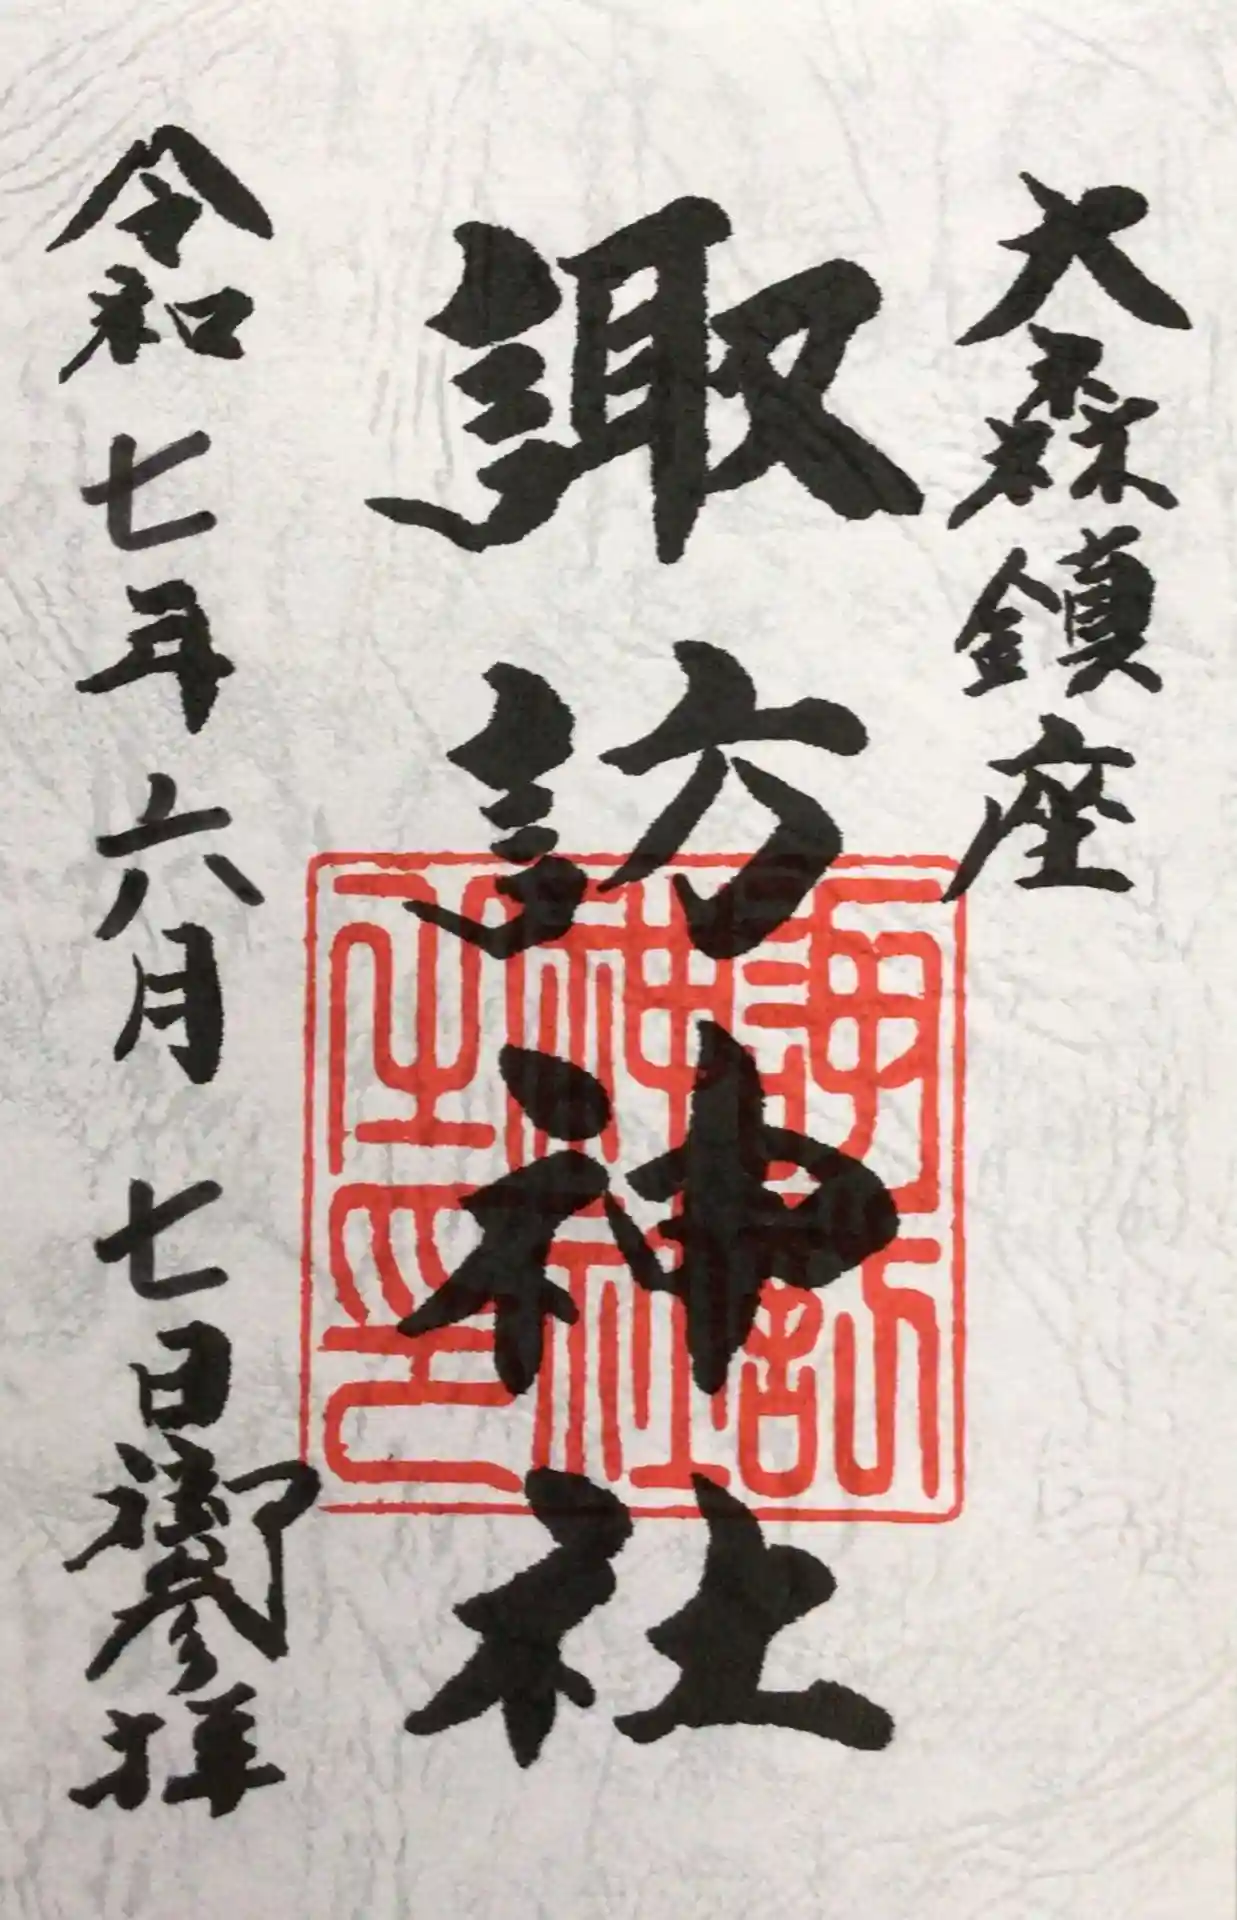 大森鎮座
諏訪神社
令和七年六月七日御参拝
諏訪
神社
之印